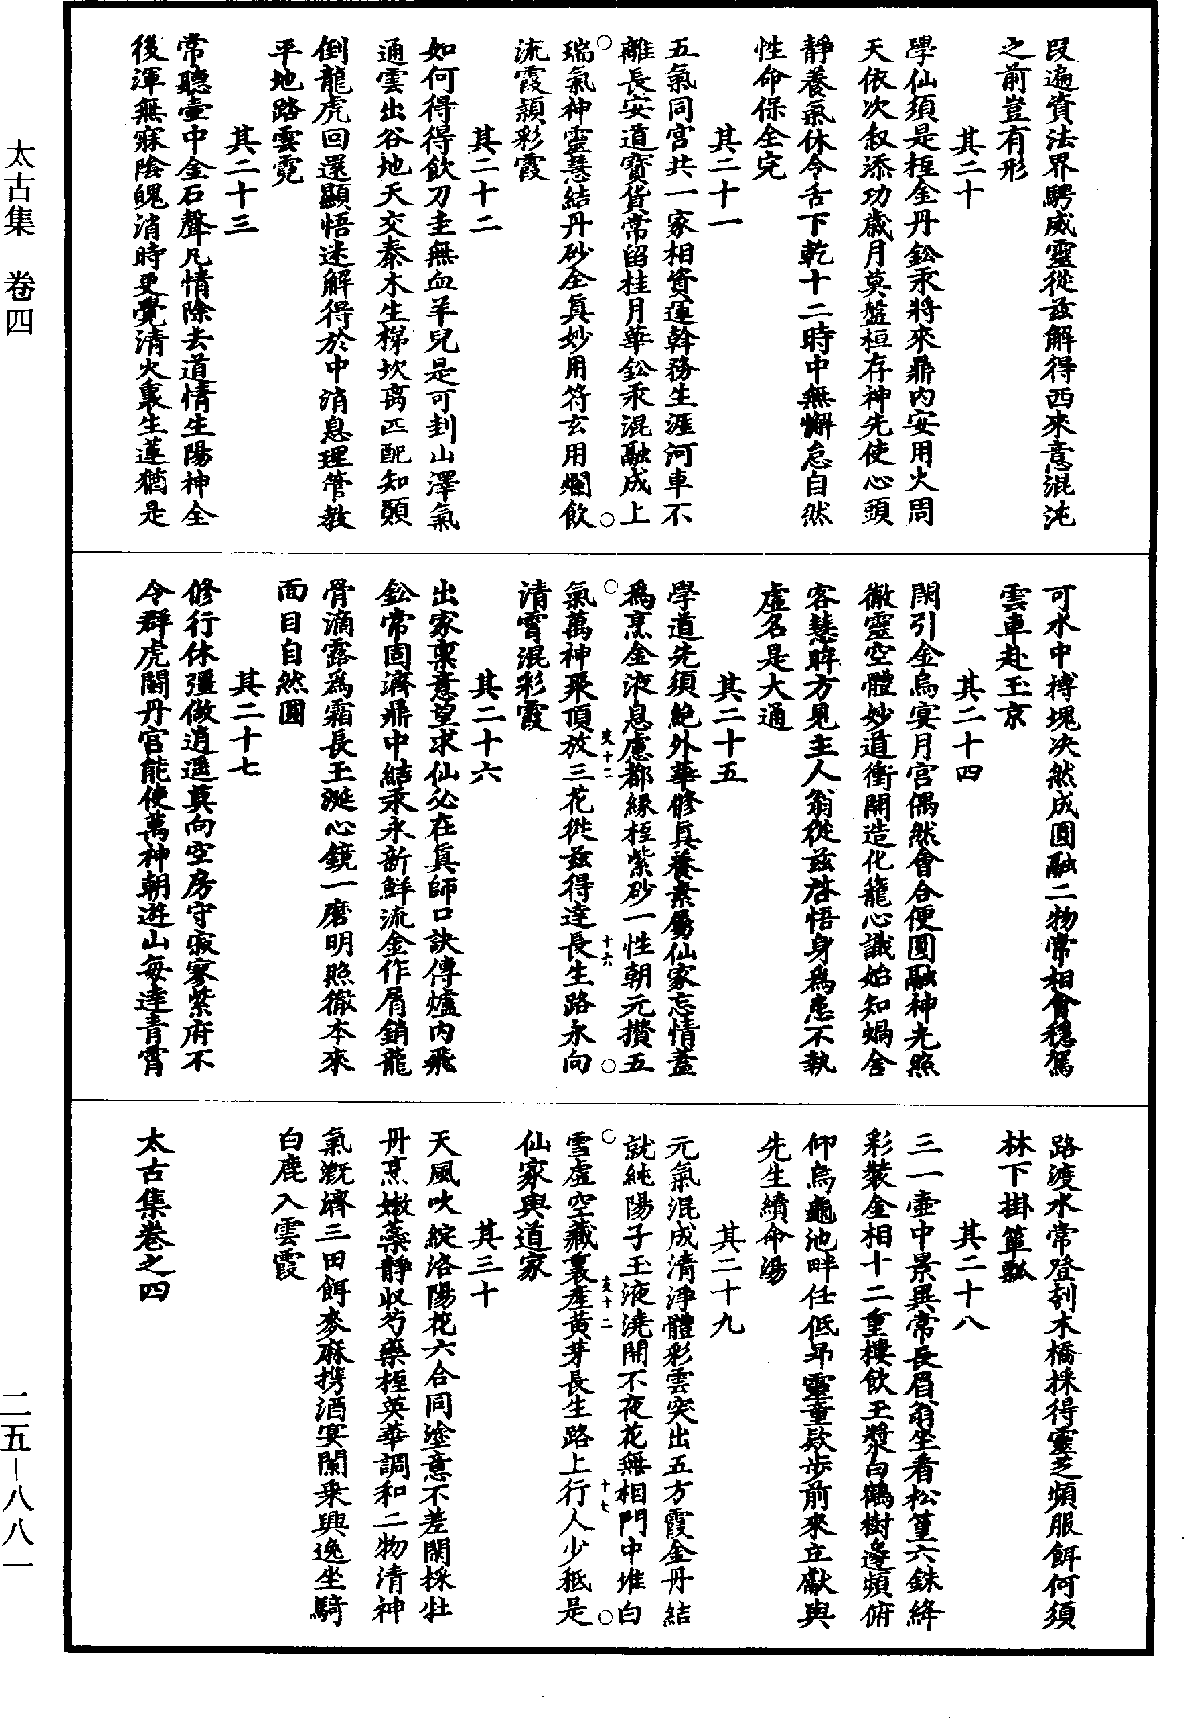 太古集　卷四
段遍資法界騁威靈從茲解得西來意混沌
之前豈有形
其二十
學仙須是桎金丹鈆汞將來鼎內安用火周
天依次叙添功歲月莫盤桓存神先使心頭
靜養氣休令舌下乾十二時中無懈怠自然
性命保全完
其二十一
五氣同宮共一家相資運幹務生涯河車不
離長安道寶貨常留桂月華鈆汞混融成上
瑞氣神靈慧結丹砂全真妙用符玄用爛飲
流霞頴彩霞
其二十二
如何得得飲刀圭無血羊兒是可刲山澤氣
通雲出谷地天交泰木生梯坎离匹配知顛
倒龍虎回還顯悟迷解得於中消息理管教
平地踏雲霓
其二十三
常聽壷中金石聲凡情除去道情生陽神全
後渾無寐陰魄消時更覺清火裏生蓮猶是
可水中摶塊决然成圓融二物常相會穩駕
雲車赴玉京
其二十四
閑引金烏宴月宮偶然會合便圓融神光照
徹靈空體妙道衝開造化籠心識始知蝸舍
客慧眸方見主人翁從茲啓悟身爲患不執
虛名是大通
其二十五
學道先須絶外華修真養素屬仙家忘情蓋
爲烹金液息慮都緣桎紫砂一性朝元攢五
氣萬神聚頂放三花從茲得達長生路永向
清霄混彩霞
其二十六
出家稟意望求仙必在真師口訣傳爐內飛
鈆常固濟鼎中結汞永新鮮流金作屑銷龍
骨滴露爲霜長玉涎心鏡一磨明照徹本來
面目自然圓
其二十七
修行休彊做逍遥莫向空房守寂寥紫府不
令群虎鬭丹宮能使萬神朝遊山每達青霄
路渡水常登刳木橋採得靈芝頻服餌何須
林下掛簞瓢
其二十八
三一壷中景異常長眉翁坐看松篁六銖絳
彩裝金相十二重樓飲玉漿白鶴樹邊頻俯
仰烏龜池畔任低昂靈童欵步前來立獻與
先生續命湯
其二十九
元氣混成清淨體彩雲突出五方霞金丹結
就純陽子玉液澆開不夜花無相門中堆白
雪虛空藏裏產黃芽長生路上行人少秪是
仙家與道家
其三十
天風吹綻洛陽花六合同塗意不差閑採牡
丹烹嫩藥靜收芍藥桎英華調和二物清神
氣溉濟三田餌麥麻携酒宴闌乗興逸坐騎
白鹿入雲霞
太古集卷之四
二五—八八一